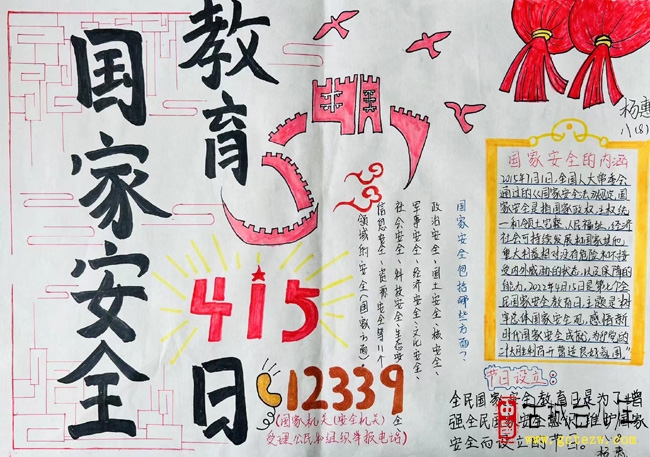 国家安全
教育
日
415
12339
(国家机关(安全机关)
受理公民和组织举报电话)
国家安全包括哪些方面?
政治安全、国土安全、核安全、
军事安全、经济安全、文化安全、
社会安全、科技安全、生态安
信息安全、资源安全等11个
领域的安全
杨惠
国家安全的内涵
2015年7月1日,全国人大常委会
通过的《国家安全法》规定,国
家安全是指国家政权、主权、统
一和领土完整、人民福祉、经济
社会可持续发展和国家其他
重大利益相对没有危险和不受
内外威胁的状态,以及保障的
能力,2022年4月15日是第七个全
民国家安全教育日,主题是树
牢总体国家安全观,感悟新
时代国家安全成就,为
二十大胜利召开营造良好氛围"
节日设立:
全民国家安全教育日是为了增
强全民国家安全意识,维护国家
安全而设立的节日。
www.gctezw.com